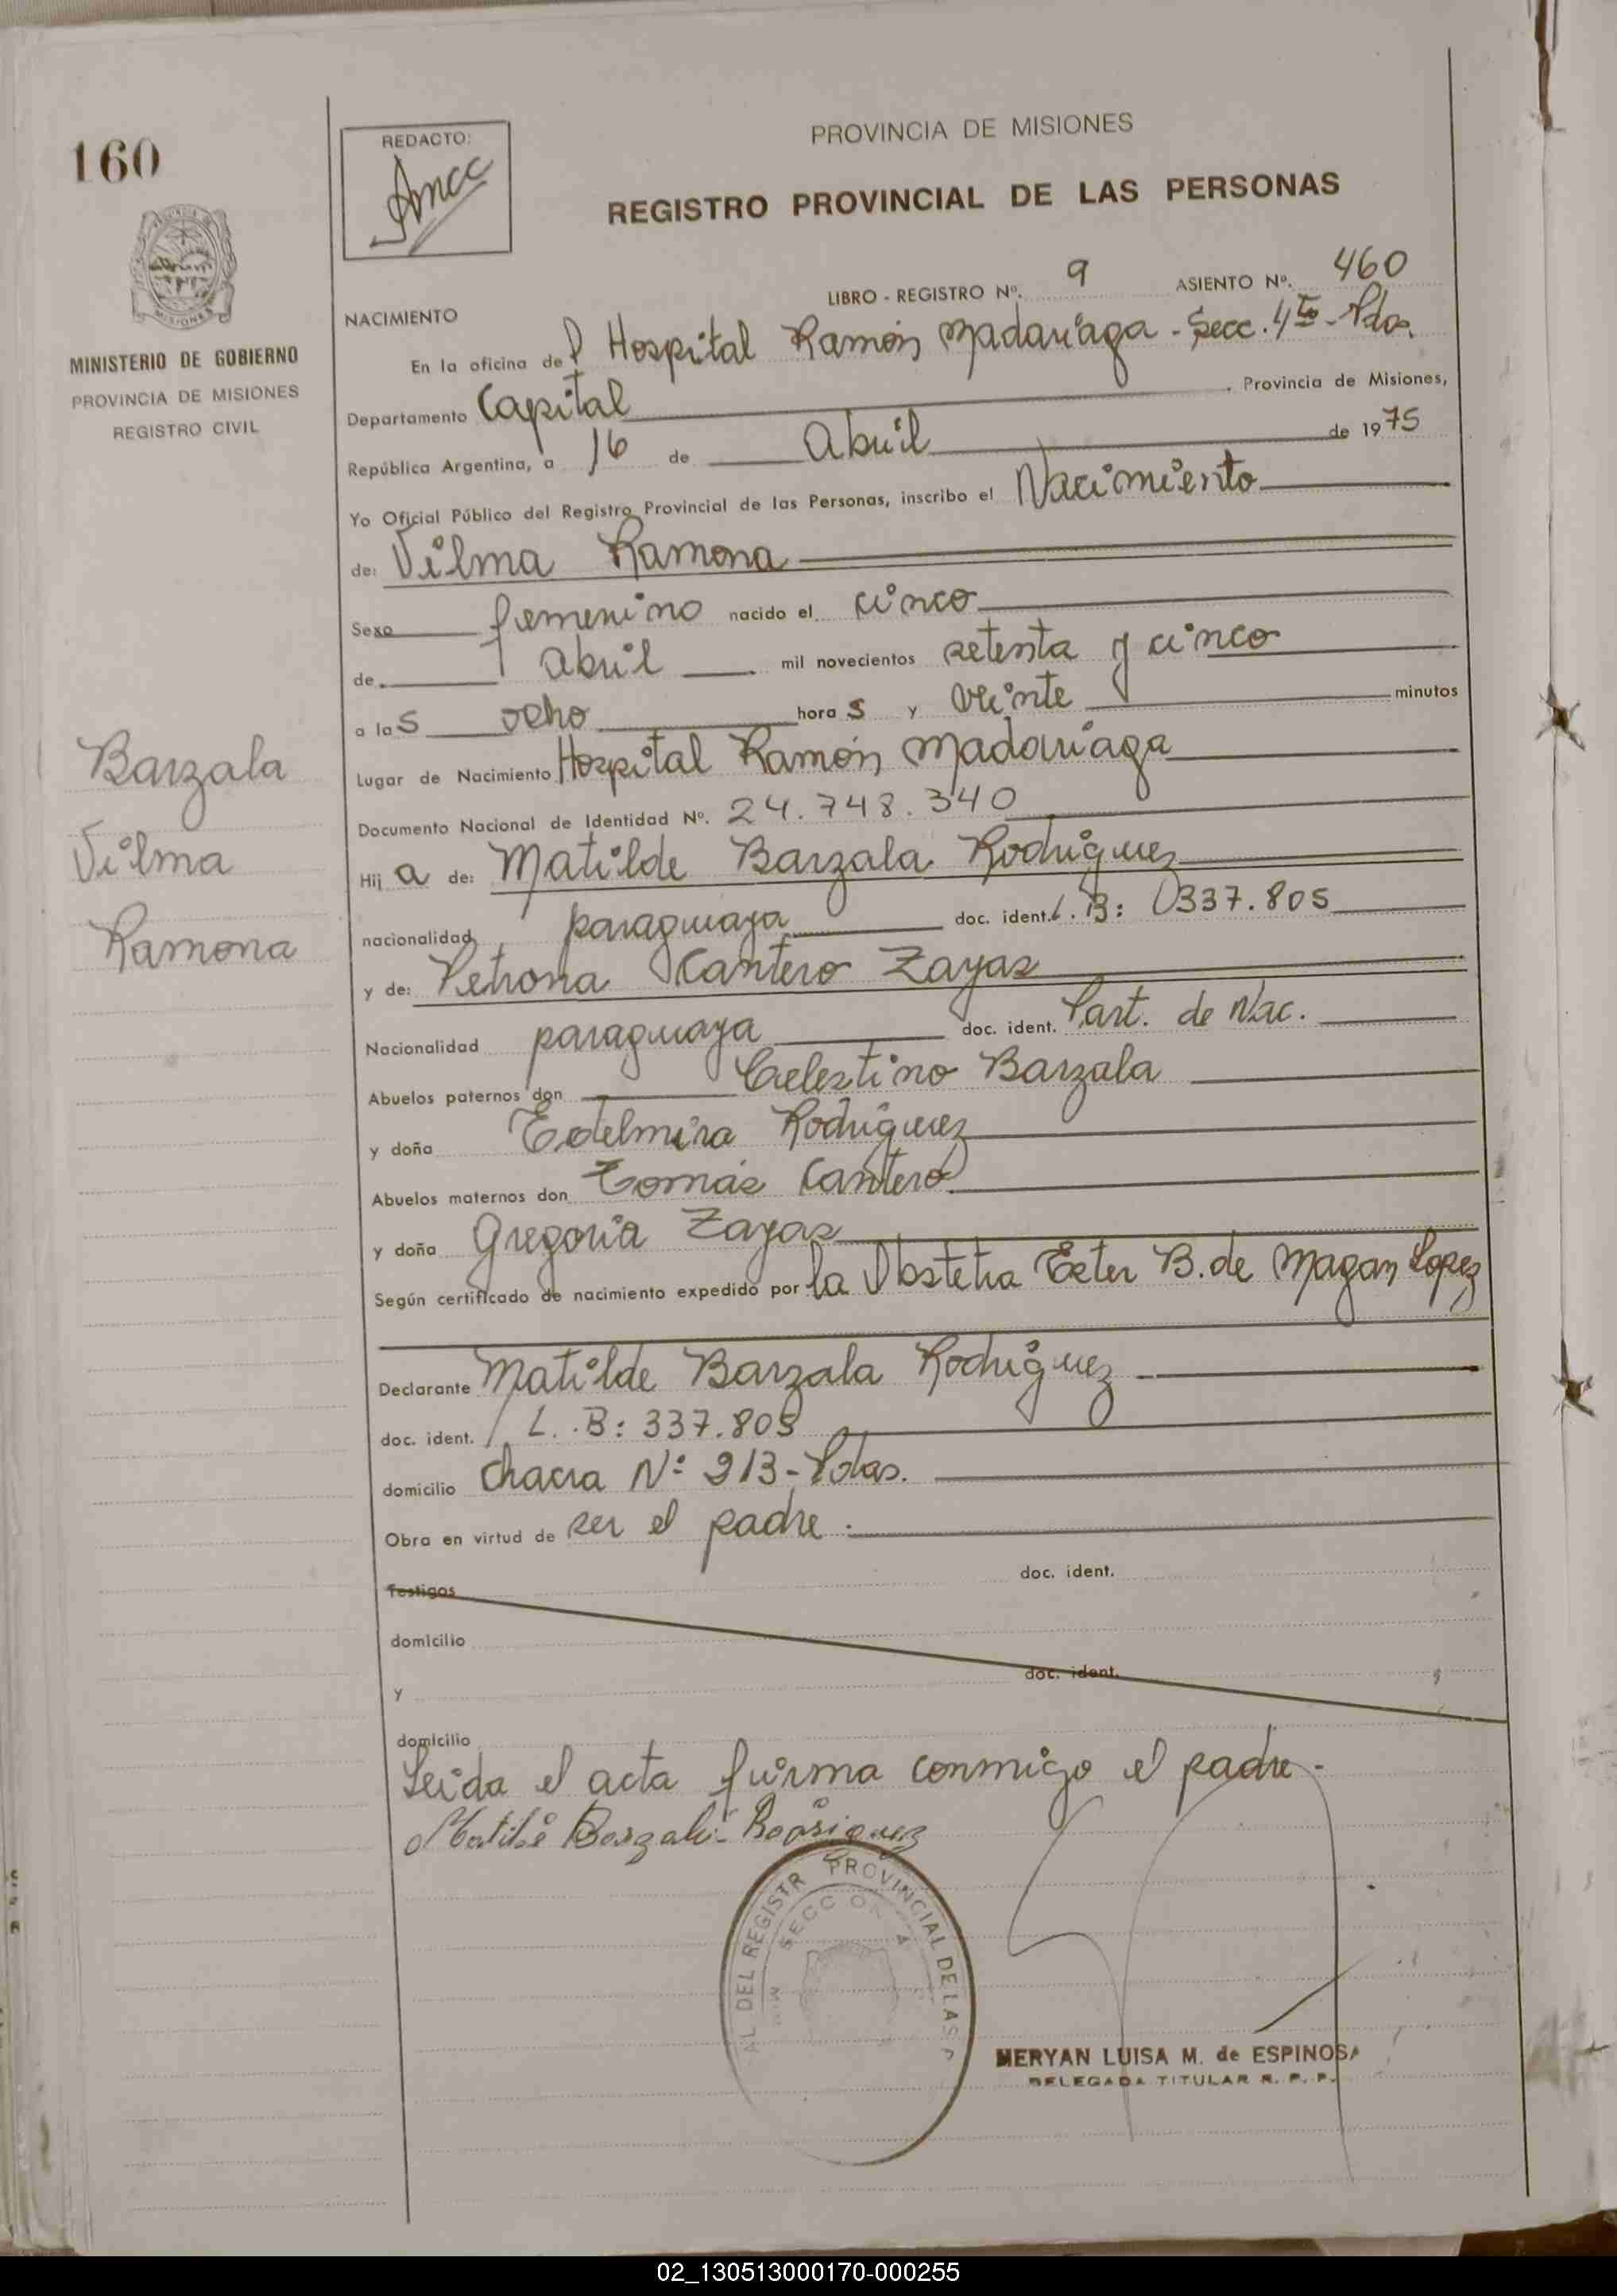 160
REDACTO:
PROVINCIA DE MISIONES
REGISTRO PROVINCIAL DE LAS PERSONAS
MISIONES
MINISTERIO DE GOBIERNO
PROVINCIA DE MISIONES
REGISTRO CIVIL
LIBRO - REGISTRO Nº. 9 ASIENTO Nº. 460
NACIMIENTO
En la oficina del Hospital Ramón Madariaga - Secc. 4ta - Pdas.
Departamento Capital, Provincia de Misiones,
República Argentina, a 16 de Abril de 1975
Yo Oficial Público del Registro Provincial de las Personas, inscribo el Nacimiento
de: Vilma Ramona
Sexo femenino nacido el cinco
de abril mil novecientos setenta y cinco
a las ocho horas y veinte minutos
Lugar de Nacimiento Hospital Ramón Madariaga
Documento Nacional de Identidad Nº. 24.748.340
Hija de: Matilde Barzala Rodriguez
nacionalidad paraguaya doc. ident. L.B: 337.805
y de: Petrona Cantero Zayas
Nacionalidad paraguaya doc. ident. Part. de Nac.
Abuelos paternos don Celestino Barzala
y doña Edelmira Rodriguez
Abuelos maternos don Tomás Cantero
y doña Gregoria Zayas
Según certificado de nacimiento expedido por la Obstetra Ester B. de Magan Lopez
Declarante Matilde Barzala Rodriguez
doc. ident. L.B: 337.805
domicilio Chacra Nº 213 - Pdas.
Obra en virtud de ser el padre.
doc. ident.
Testigos
domicilio
doc. ident.
y
domicilio
Leida el acta firma conmigo el padre.
Barzala
Vilma
Ramona
AL DEL REGISTR PROVINCIAL DE LAS P
SECCION 4
MERYAN LUISA M. de ESPINOSA
DELEGADA TITULAR R. P. P.
02_130513000170-000255